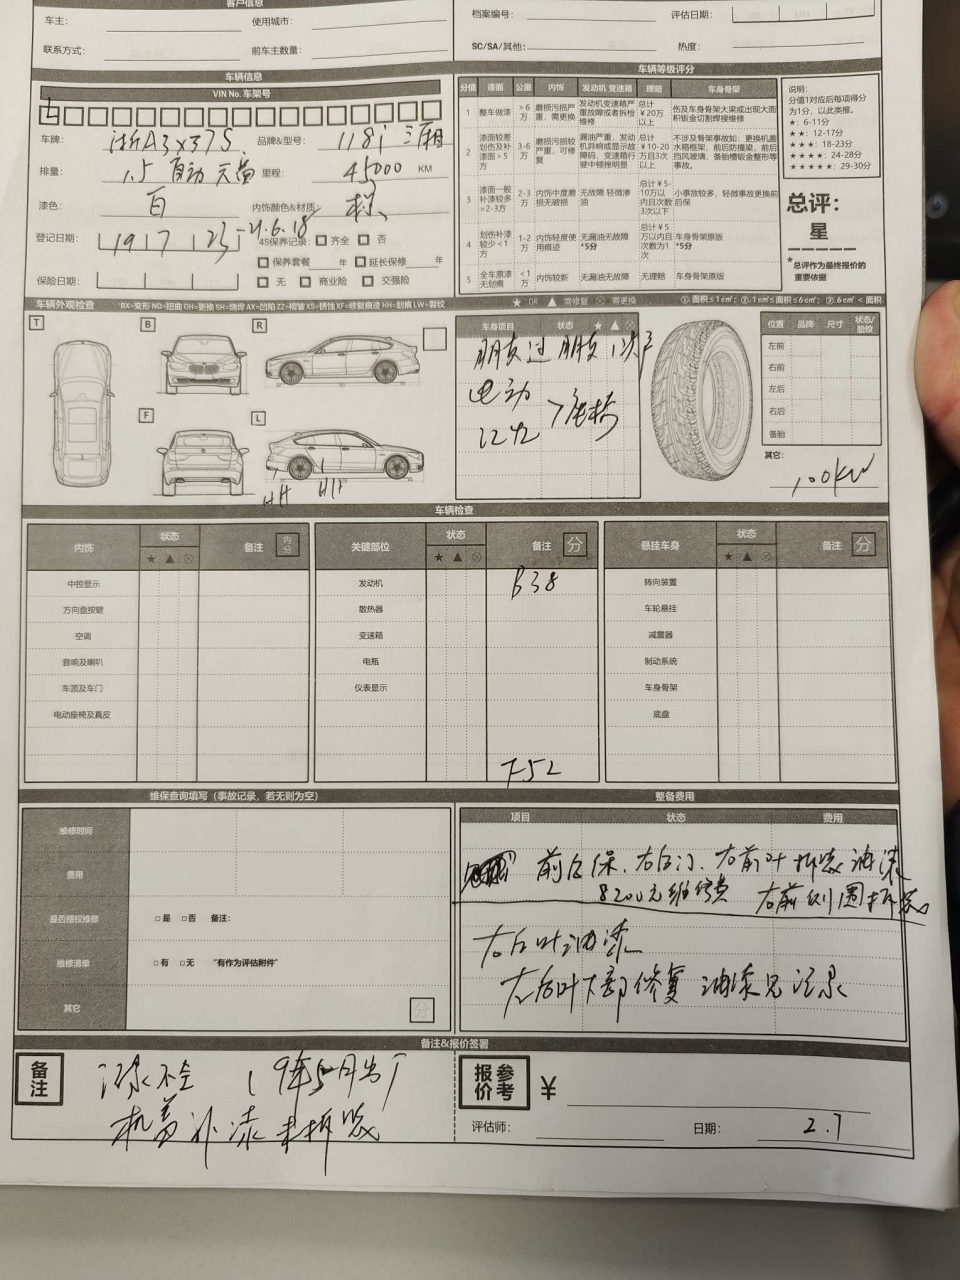 客户信息
车主: 使用城市:
联系方式: 前车主数量:
档案编号: 评估日期:
SC/SA/其他: 热度:
车辆信息
VIN No. 车架号
L
车牌: 浙A3X37S 品牌&型号: 118i 三厢
排量: 1.5 自动 里程: 45000 KM
漆色: 白 内饰颜色&材质:
登记日期: 19 7 23 -21.6.18 4S保养记录: 齐全 否
保养套餐 年 延长保修 年
保险日期: 无 商业险 交强险
车辆等级评分
分值 漆面 公里 内饰 发动机 变速箱 理赔 车身骨架
1 整车做漆 >6万 磨损污损严重、需更换 发动机变速箱严重故障或者拆检维修 总计¥20万以上 伤及车身骨架大梁或出现大面积钣金切割焊接维修
2 漆面较差划伤及补漆面>5方 3-6万 磨损污损较严重,可修复 漏油严重,发动机异响或显示故障码、变速箱行驶中顿挫明显 总计¥10-20万且3次以上 不涉及骨架事故如:更换机盖水箱框架,前后防撞梁,前后挡风玻璃、备胎槽钣金整形等事故。
3 漆面一般补漆较多=2-3方 2-3万 内饰中度磨损无破损 无故障 轻微渗油 总计¥5-10万以内且次数3次以下 小事故较多,轻微事故更换前后保
4 划伤补漆较少<1方 1-2万 内饰轻度使用痕迹 无漏油无故障*5分 总计¥5万以内且次数为1次 车身骨架原版*5分
5 全车原漆无划痕 <1万 内饰较新 无漏油无故障 无理赔 车身骨架原版
说明:
分值1对应后每项得分为1分,以此类推。
★: 6-11分
★★: 12-17分
★★★: 18-23分
★★★★: 24-28分
★★★★★: 29-30分
总评:
星
*总评作为最终报价的重要依据
车辆外观检查 *BX=变形 NQ=扭曲 GH=更换 SH=烧焊 AX=凹陷 ZZ=褶皱 XS=锈蚀 XF=修复痕迹 HH=划痕 LW=裂纹 ★ OK ▲ 需修复 ⊗ 需更换 ①.面积≤1c㎡; ②.1c㎡≤面积≤6c㎡; ③.6c㎡<面积
T B R
F L
HH HH
车身项目 状态 ★ ▲ ⊗
朋友过 朋友
电动
位置 品牌 尺寸 状态/胎纹
左前
右前
左后
右后
备胎
其它:
100KW
车辆检查
内饰 状态 备注 内分 关键部位 状态 备注 分 悬挂车身 状态 备注 分
★ ▲ ⊗ ★ ▲ ⊗ ★ ▲ ⊗
中控显示 发动机 B38 转向装置
方向盘按键 散热器 车轮悬挂
空调 变速箱 减震器
音响及喇叭 电瓶 制动系统
车顶及车门 仪表显示 车身骨架
电动座椅及真皮 底盘
F52
维保查询填写(事故记录,若无则为空)
维修时间
费用
是否授权维修 □是 □否 备注:
维修清单 □有 □无 "有作为评估附件"
其它
分
整备费用
项目 状态 费用
前后保、右后门、右前叶拆装油漆
8200元维修费 右前
右后叶油漆
左后叶下部修复 油漆见记录
备注&报价签署
备注
漆不全 19年5月出厂
机盖补漆未拆装
报价参考 ¥
评估师: 日期: 2.7